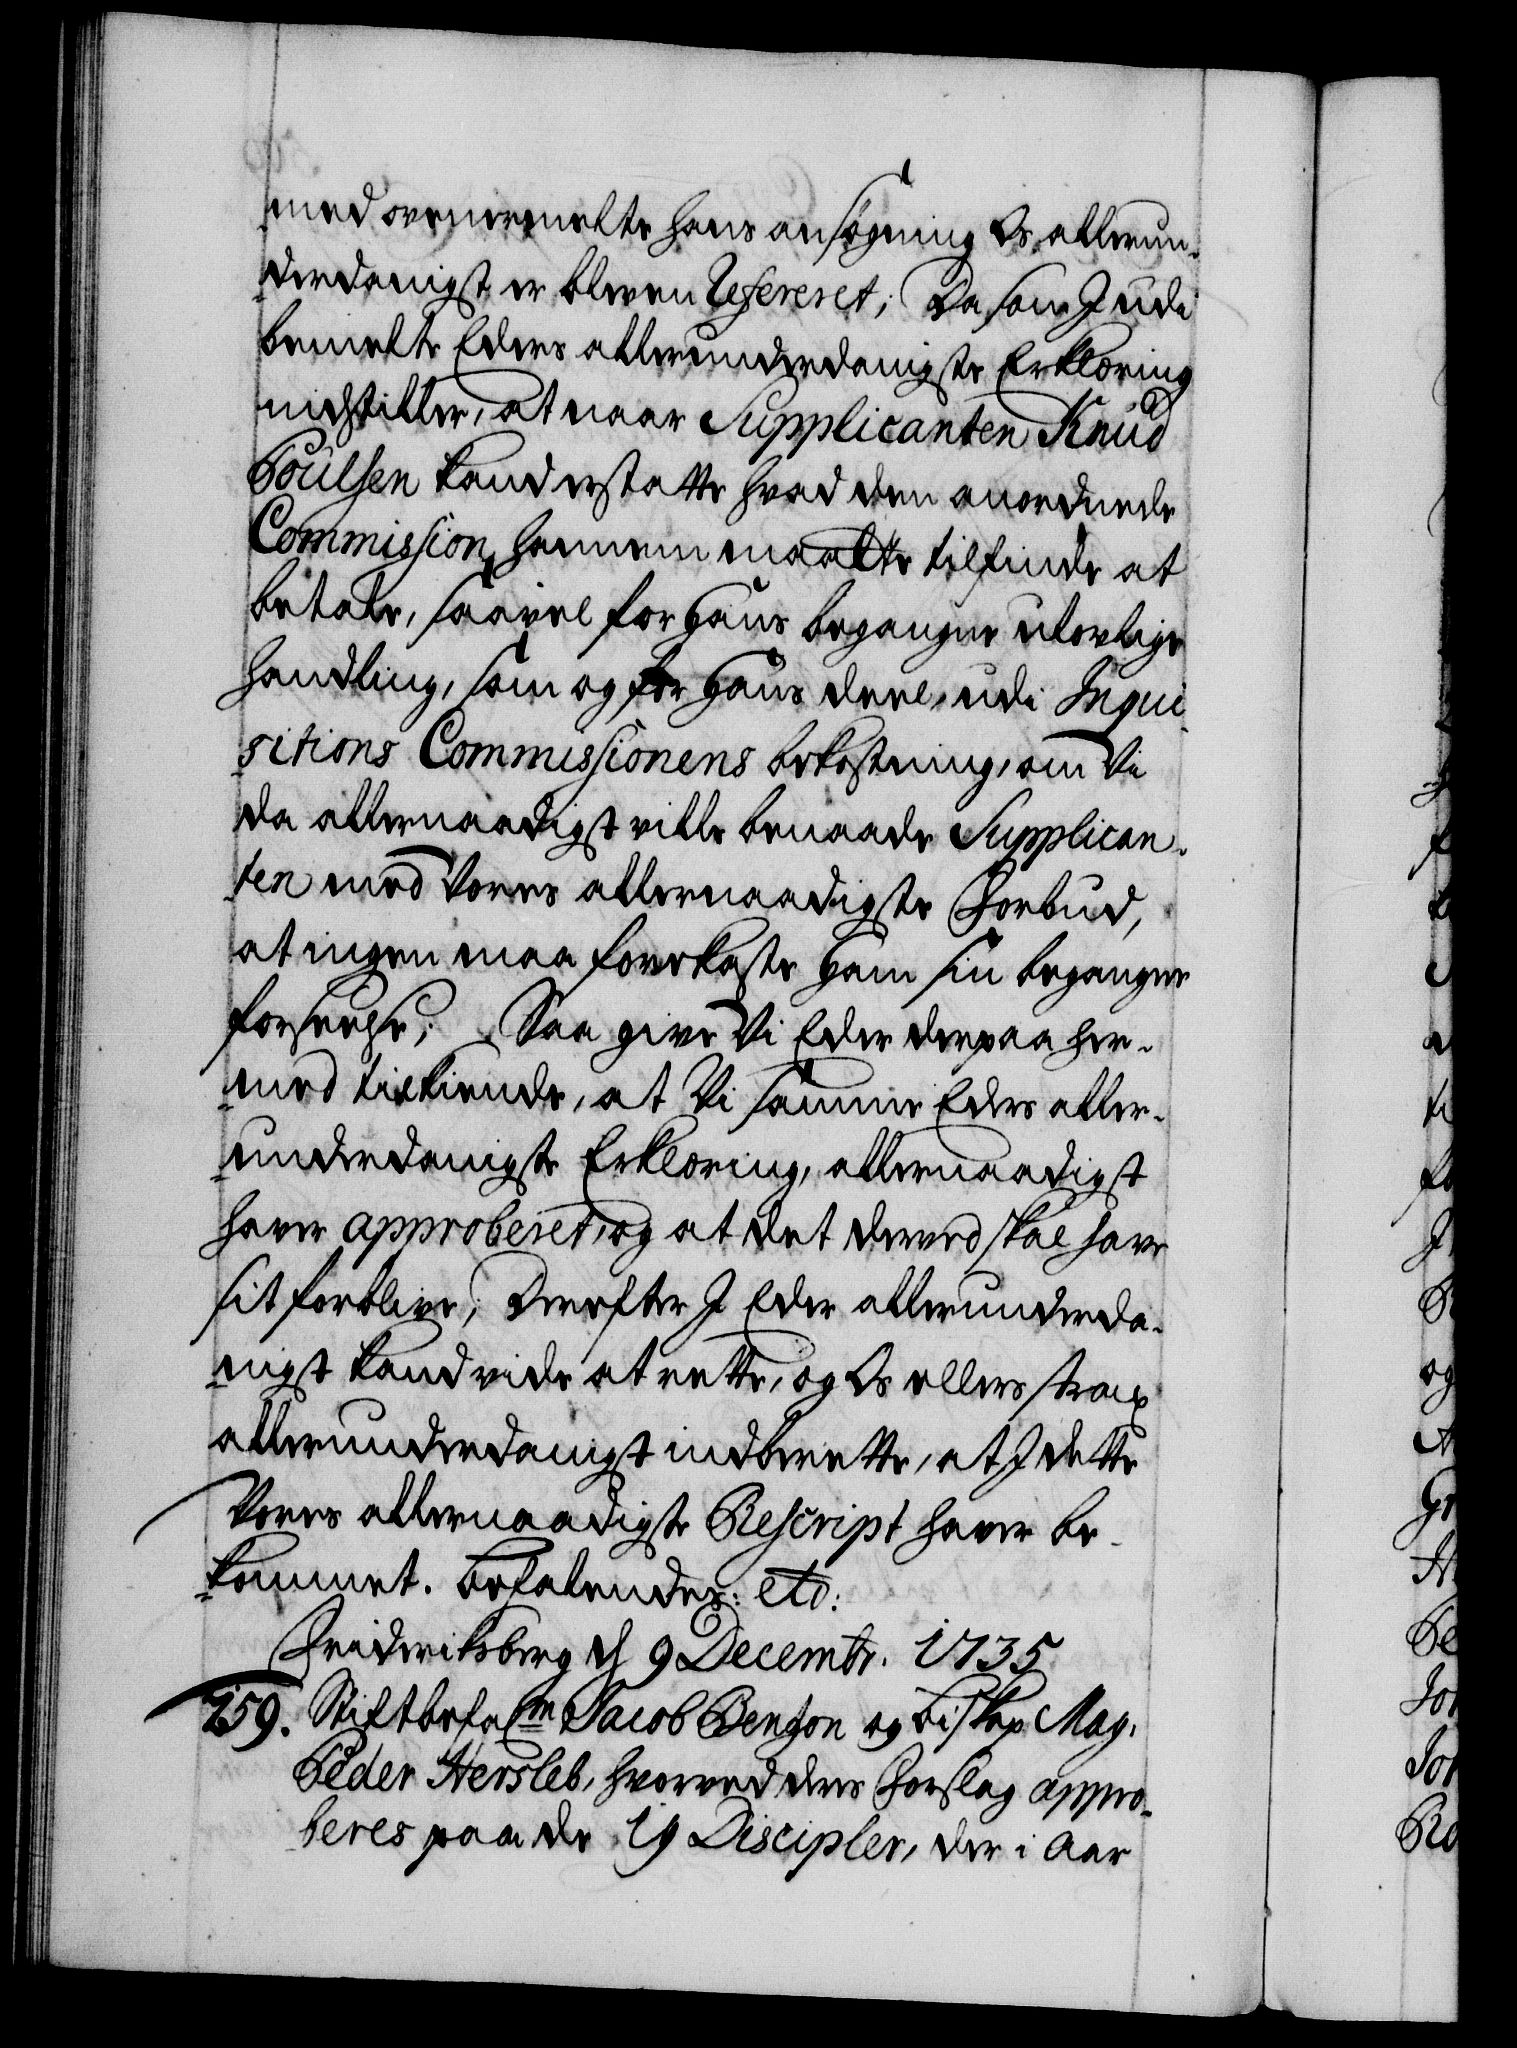 med ovenermelte hans ansøgning Os allerun-
derdanigst er bleven Refereret; Da som I udi
bemelte Eders allerunderdanigste Erklæring
indstiller, at naar Supplicanten Knud
Poulsen kand erstatte hvad den anordnede
Commission hannem maatte tilfinde at
betale, saavel for hans begangne ulovlige
handling, som og for hans deel, udi Inqui-
sitions Commissionens bekostning, om Vi
da allernaadigst ville benaade Supplican-
ten med Vores allernaadigste Forbud,
at ingen maa forekaste ham sin begangne
forseelse; Saa give Vi Eder derpaa her-
med tilkiende, at Vi samme Eders aller-
underdanigste Erklæring, allernaadigst
haver approberet, og at det derved skal have
sit forblive; Derefter I Eder allerunderda-
nigst kand vide at rette, og Os ellers strax
allerunderdanigst indberette, at I dette
Vores allernaadigste Rescript haver be-
kommet. Befalendes: etc:
Frideriksberg d 9 Decembr. 1735
259. Stiftbefalm Jacob Benzon og biskop Mag.
Peder Hersleb, hvorved deres Forslag appro-
beres paa de 19 Discipler, der i Aar